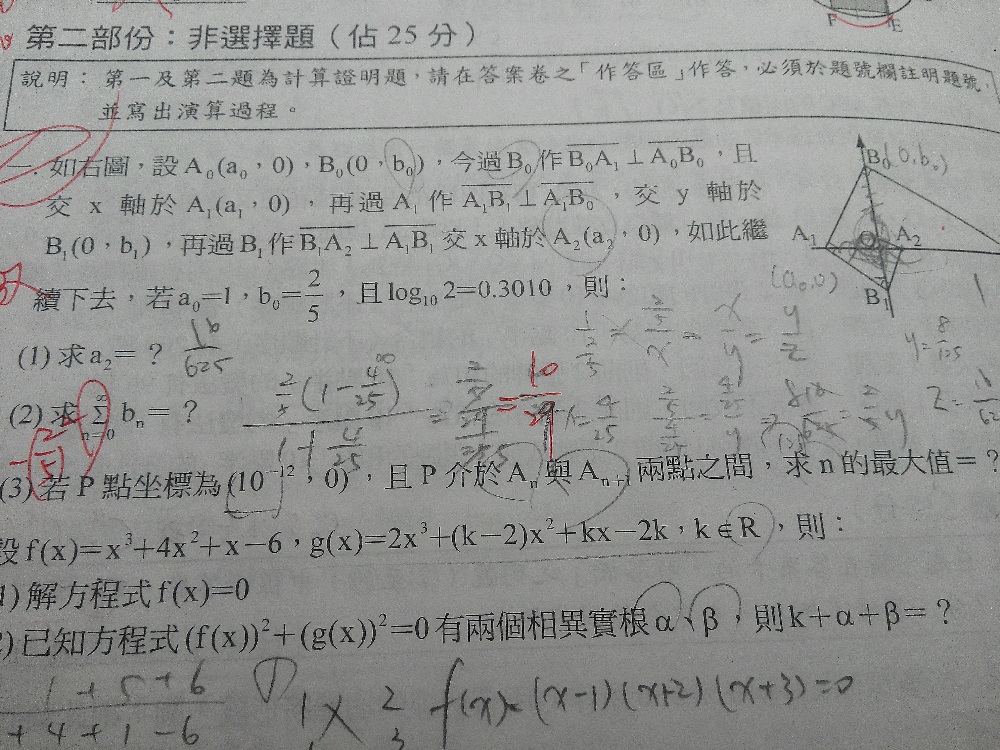 第二部份：非選擇題（佔25分）
說明：第一及第二題為計算證明題，請在答案卷之「作答區」作答，必須於題號欄註明題號，
並寫出演算過程。
一. 如右圖，設A₀(a₀，0)，B₀(0，b₀)，今過B₀作B₀A₁⊥A₀B₀，且
交 x 軸於 A₁(a₁，0) ，再過 A₁ 作 A₁B₁⊥A₁B₀ ，交 y 軸於
B₁(0，b₁)，再過B₁作B₁A₂⊥A₁B₁交x軸於A₂(a₂，0)，如此繼
續下去，若a₀=1，b₀=2/5，且log₁₀2=0.3010，則：
B₀(0,b₀)
A₁
O
A₂
(a₀,0)
B₁
(1) 求a₂=？ 16/625
(2) 求 Σ(n=0→∞) bₙ=？
= 10/29
(3) 若P點坐標為(10⁻¹²，0)，且P介於Aₙ與Aₙ₊₁兩點之間，求n的最大值=？
設f(x)=x³+4x²+x−6，g(x)=2x³+(k−2)x²+kx−2k，k∈R，則：
1) 解方程式f(x)=0
2) 已知方程式(f(x))²+(g(x))²=0有兩個相異實根α、β，則k+α+β=？
1+5+6
+4+1-6
f(x)=(x-1)(x+2)(x+3)=0